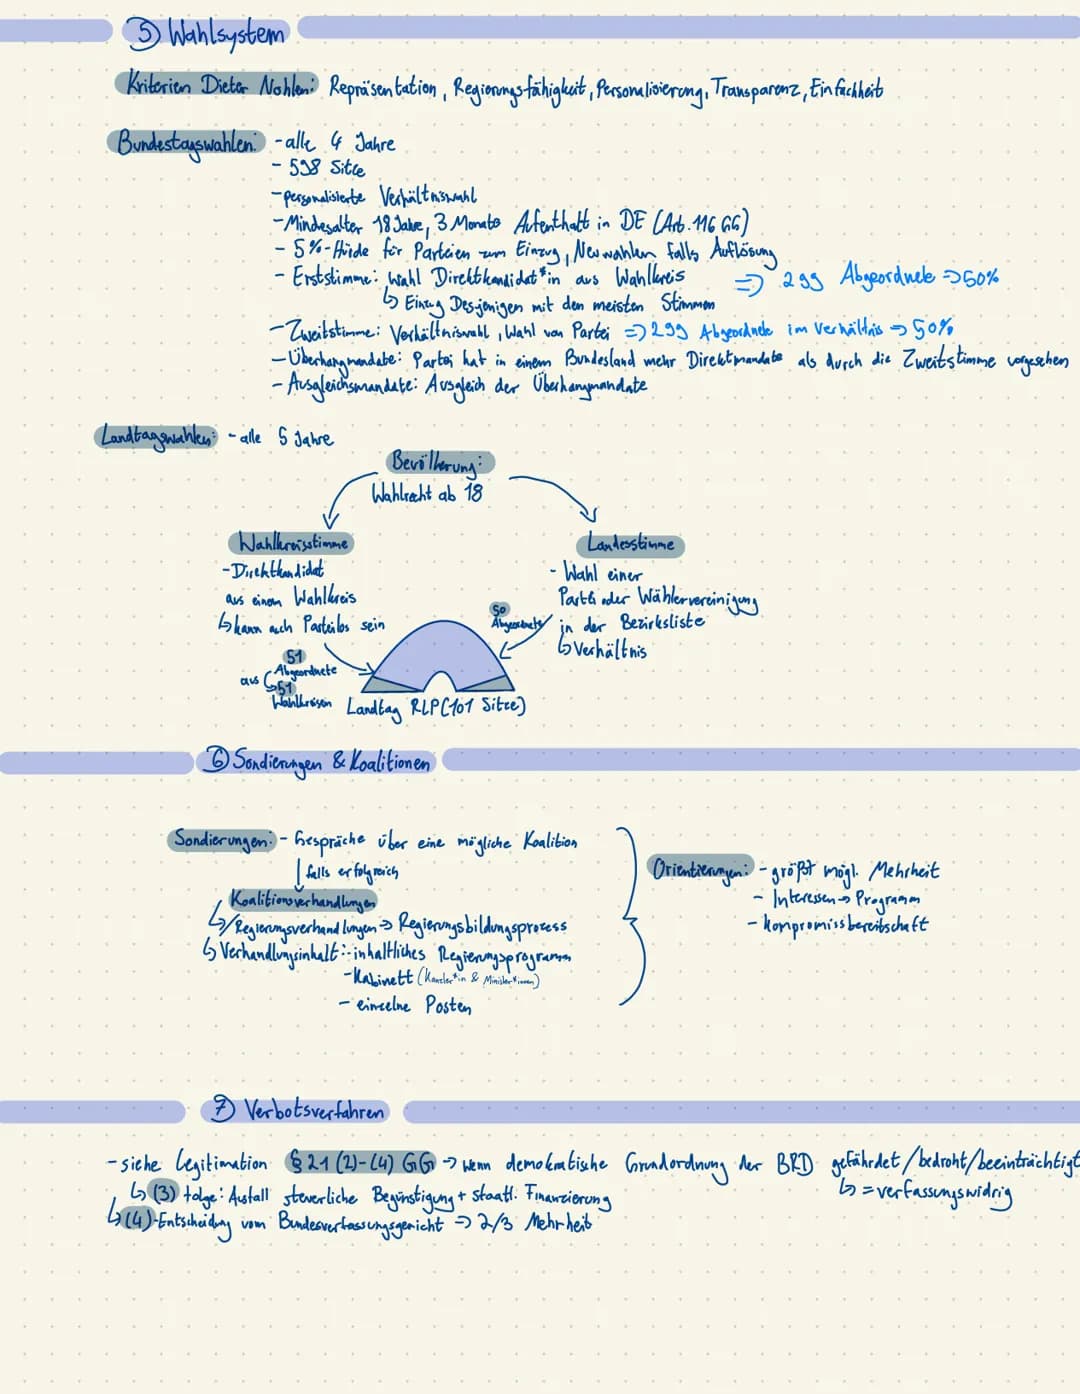 5 Wahlsystem
Kriterien Dieter Nohlen: Repräsentation, Regierungsfähigkeit, Personalisierung, Transparenz, Einfachheit
Bundestagswahlen: - alle 4 Jahre
- 598 Sitze
- personalisierte Verhältniswahl
- Mindesalter 18 Jahre, 3 Monate Aufenthalt in DE (Art. 116 GG)
- 5%-Hürde für Parteien zum Einzug, Neuwahlen falls Auflösung
- Erststimme: Wahl Direktkandidat*in aus Wahlkreis => 299 Abgeordnete => 50%
↳ Einzug Desjenigen mit den meisten Stimmen
- Zweitstimme: Verhältniswahl, Wahl von Partei => 299 Abgeordnete im Verhältnis => 50%
- Überhangmandate: Partei hat in einem Bundesland mehr Direktmandate als durch die Zweitstimme vorgesehen
- Ausgleichsmandate: Ausgleich der Überhangmandate
Landtagswahlen: - alle 5 Jahre
Bevölkerung:
Wahlrecht ab 18
Wahlkreisstimme
- Direktkandidat
aus einem Wahlkreis
↳ kann auch Parteilos sein
51
Abgeordnete
aus 51
Wahlkreisen
Landesstimme
- Wahl einer
Partei oder Wählervereinigung
in der Bezirksliste
↳ Verhältnis
50
Abgeordnete
Landtag RLP (101 Sitze)
6 Sondierungen & Koalitionen
Sondierungen: - Gespräche über eine mögliche Koalition
↓ falls erfolgreich
Koalitionsverhandlungen
↳ /Regierungsverhandlungen -> Regierungsbildungsprozess
↳ Verhandlungsinhalt: - inhaltliches Regierungsprogramm
- Kabinett (Kanzler*in & Minister*innen)
- einzelne Posten
Orientierungen: - größt mögl. Mehrheit
- Interessen -> Programm
- Kompromissbereitschaft
7 Verbotsverfahren
- siehe Legitimation § 21 (2)-(4) GG -> wenn demokratische Grundordnung der BRD gefährdet/bedroht/beeinträchtigt
↳ = verfassungswidrig
↳ (3) Folge: Ausfall steuerliche Begünstigung + staatl. Finanzierung
↳ (4) - Entscheidung vom Bundesverfassungsgericht => 2/3 Mehrheit